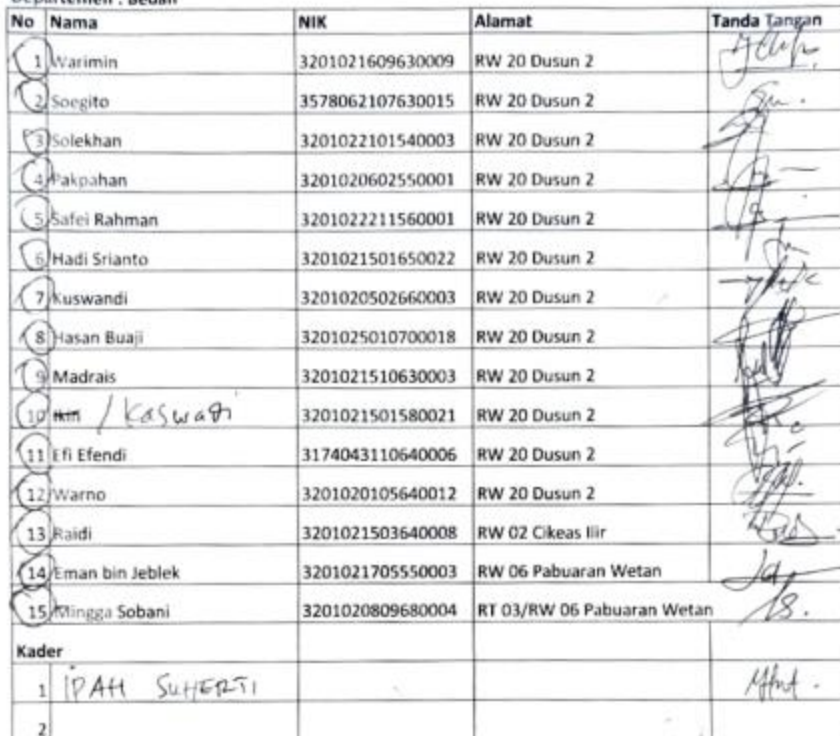 Departemen : Bedah
No Nama NIK Alamat Tanda Tangan
1 Warimin 3201021609630009 RW 20 Dusun 2
2 Soegito 3578062107630015 RW 20 Dusun 2
3 Solekhan 3201022101540003 RW 20 Dusun 2
4 Pakpahan 3201020602550001 RW 20 Dusun 2
5 Safei Rahman 3201022211560001 RW 20 Dusun 2
6 Hadi Srianto 3201021501650022 RW 20 Dusun 2
7 Kuswandi 3201020502660003 RW 20 Dusun 2
8 Hasan Buaji 3201025010700018 RW 20 Dusun 2
9 Madrais 3201021510630003 RW 20 Dusun 2
10 / Kaswadi 3201021501580021 RW 20 Dusun 2
11 Efi Efendi 3174043110640006 RW 20 Dusun 2
12 Warno 3201020105640012 RW 20 Dusun 2
13 Raidi 3201021503640008 RW 02 Cikeas Ilir
14 Eman bin Jeblek 3201021705550003 RW 06 Pabuaran Wetan
15 Mingga Sobani 3201020809680004 RT 03/RW 06 Pabuaran Wetan
Kader
1 IPAH SUHERTI
2